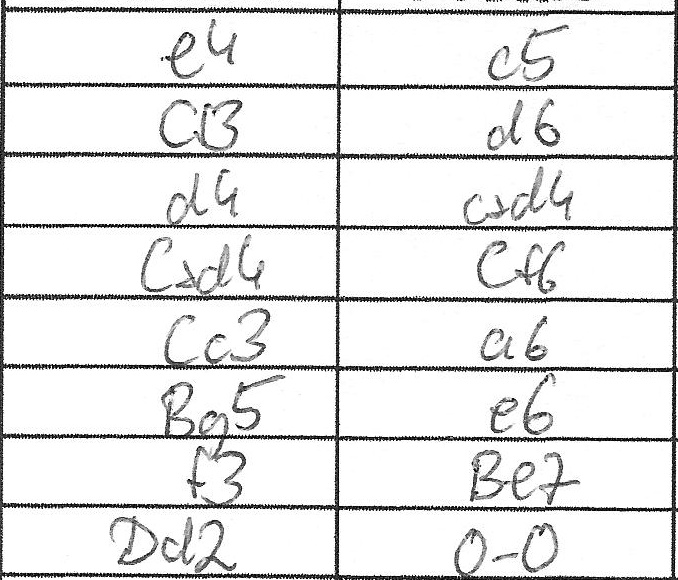 e4 c5
Cf3 d6
d4 cxd4
Cxd4 Cf6
Cc3 a6
Bg5 e6
f3 Be7
Dd2 0-0